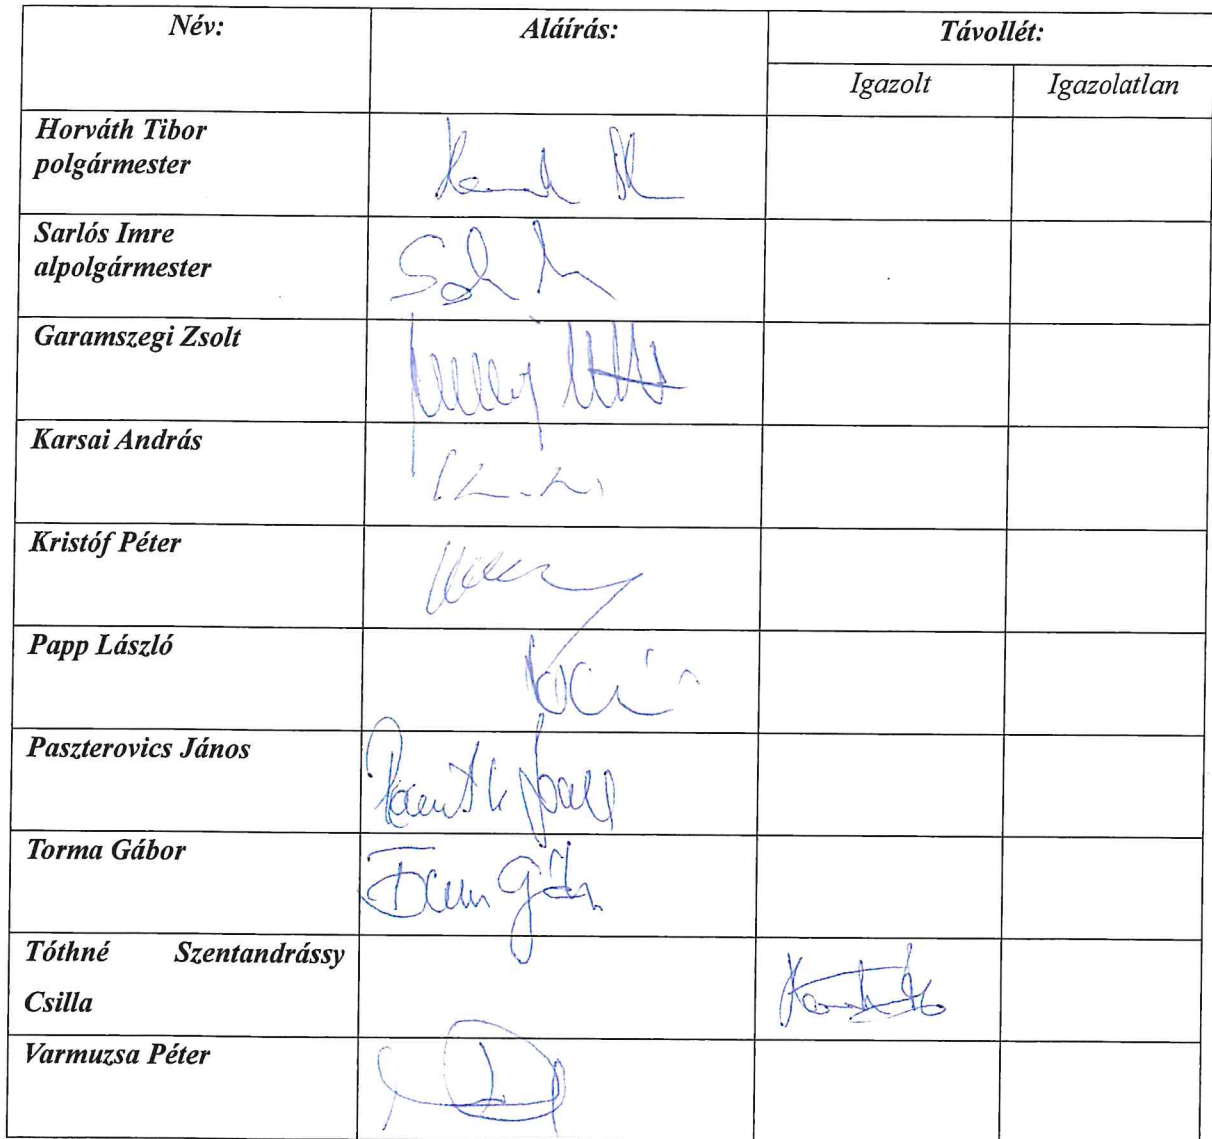 Név: Aláírás: Távollét:
Igazolt Igazolatlan
Horváth Tibor
polgármester
Sarlós Imre
alpolgármester
Garamszegi Zsolt
Karsai András
Kristóf Péter
Papp László
Paszterovics János
Torma Gábor
Tóthné Szentandrássy
Csilla
Varmuzsa Péter